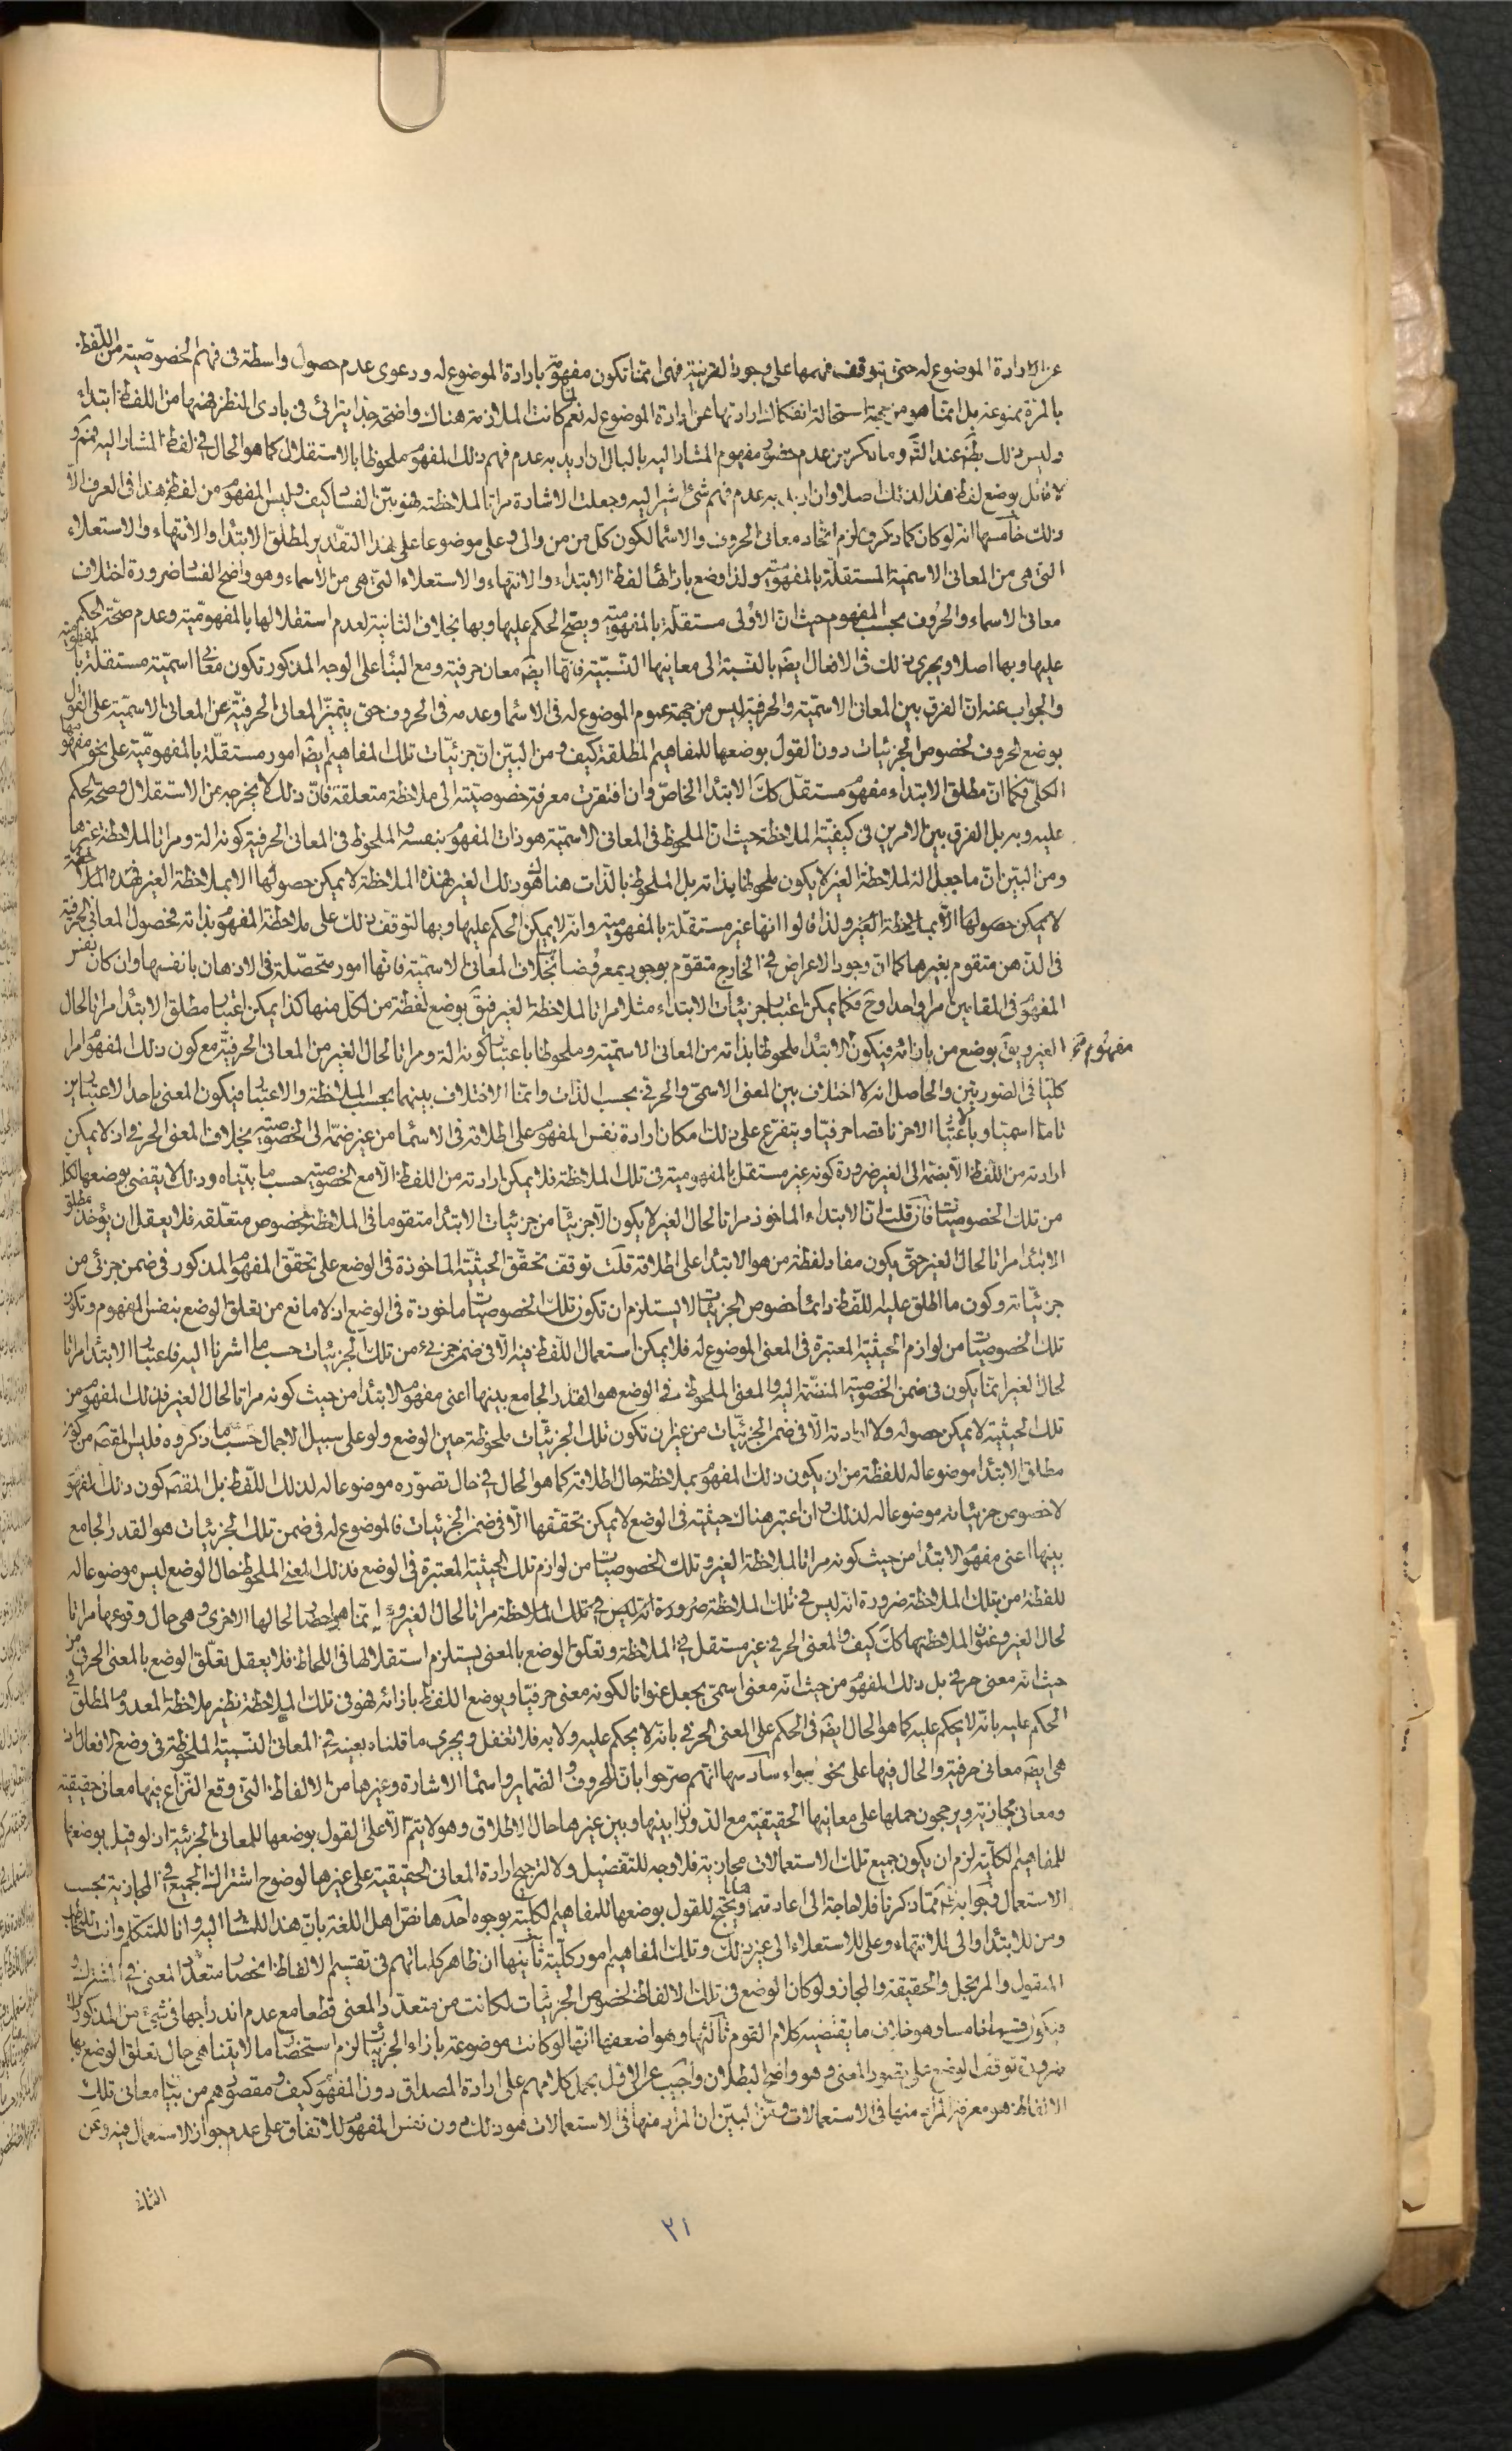 عن ارادة الموضوع له حتى يتوقف فهمها على وجود القرينة فهى انما تكون مفهومة بارادة الموضوع له ودعوى عدم حصول واسطة فى فهم الخصوصية من اللفظ
بالمرة ممنوعة بل انما هو من جهة استحالة انفكاك ارادتها عن ارادة الموضوع له نعم لما كانت الملازمة هناك واضحة جدا يترائى فى بادى النظر فهمها من اللفظ ابتداء
وليس ذلك بظ عند الت‍ وما ذكر من عدم حضور مفهوم المشار اليه بالبال ان اريد به عدم فهم ذلك المفهوم ملحوظا بالاستقلال كما هو الحال فى لفظ المشار اليه فمم و
لا قائل بوضع لفظ هذا لذلك اصلا وان اريد به عدم فهم شئ اشير اليه وجعلت الاشارة مراتا لملاحظته فهو بين الفساد كيف وليس المفهوم من لفظ هذا فى العرف الا
ذلك خامسها انه لو كان كما ذكروه لزم اتحاد معانى الحروف والاسماء لكون كل من من والى وعلى موضوعا على هذا التقدير لمطلق الابتداء والانتهاء والاستعلاء
التى هى من المعانى الاسمية المستقلة بالمفهومية ولذا وضع بازائها لفظ الابتداء والانتهاء والاستعلاء التى هى من الاسماء وهو واضح الفساد ضرورة اختلاف
معانى الاسماء والحروف بحسب المفهوم حيث ان الاولى مستقلة بالمفهومية ويصح الحكم عليها وبها بخلاف الثانية لعدم استقلالها بالمفهومية وعدم صحة الحكم
عليها وبها اصلا ويجرى ذلك فى الافعال ايض بالنسبة الى معانيها النسبية فانها ايض معان حرفية ومع البناء على الوجه المذكور تكون معانى اسمية مستقلة بالمفهومية
والجواب عنه ان الفرق بين المعانى الاسمية والحرفية ليس من جهة عموم الموضوع له فى الاسماء وعدمه فى الحروف حتى يتميز المعانى الحرفية عن المعانى الاسمية على القول
بوضع الحروف لخصوص الجزئيات دون القول بوضعها للمفاهيم المطلقة كيف ومن البين ان جزئيات تلك المفاهيم ايض امور مستقلة بالمفهومية على نحو مفهومها
الكلى فكما ان مطلق الابتداء مفهوم مستقل كك الابتداء الخاص وان افتقرت معرفة خصوصيته الى ملاحظة متعلقه فان ذلك لا يخرجه عن الاستقلال وصحة الحكم
عليه وبه بل الفرق بين الامرين فى كيفية الملاحظة حيث ان الملحوظ فى المعانى الاسمية هو ذات المفهوم بنفسه والملحوظ فى المعانى الحرفية كونه الة ومراتا لملاحظة غيرها
ومن البين ان ما جعل الة لملاحظة الغير لا يكون ملحوظا بذاته بل الملحوظ بالذات هناك هو ذلك الغير فهذه الملاحظة لا يمكن حصولها الا بملاحظة الغير فهذه الملاحظة
لا يمكن حصولها الا بملاحظة الغير ولذا قالوا انها غير مستقلة بالمفهومية وانه لا يمكن الحكم عليها وبها لتوقف ذلك على ملاحظة المفهوم بذاته فحصول المعانى الحرفية
فى الذهن متقوم بغيرها كما ان وجود الاعراض فى الخارج متقوم بوجود معروضاتها بخلاف المعانى الاسمية فانها امور متحصلة فى الاذهان بانفسها وان كان نفس
المفهوم فى المقامين امرا واحدا وح فكما يمكن اعتبار جزئيات الابتداء مثلا مراتا لملاحظة الغير فيق بوضع لفظة من لكل منها كذا يمكن اعتبار مطلق الابتداء مراتا لحال
الغير ويق بوضع من بازائه فيكون مفهوم الابتداء ملحوظا بذاته من المعانى الاسمية وملحوظا باعتبار كونه الة ومراتا لحال الغير من المعانى الحرفية مع كون ذلك المفهوم امرا
كليا فى الصورتين والحاصل انه لا اختلاف بين المعنى الاسمى والحرفى بحسب الذات وانما الاختلاف بينهما بحسب الملاحظة والاعتبار فيكون المعنى باحد الاعتبارين
تاما اسميا وبالاعتبار الاخر ناقصا حرفيا ويتفرع على ذلك امكان ارادة نفس المفهوم على اطلاقه فى الاسماء من غير ضمه الى الخصوصية بخلاف المعنى الحرفى اذ لا يمكن
ارادته من اللفظ الا بضمه الى الغير ضرورة كونه غير مستقل بالمفهومية فى تلك الملاحظة فلا يمكن ارادته من اللفظ الا مع الخصوصية حسب ما بيناه وذلك لا يقضى بوضعها لكل
من تلك الخصوصيات فان قلت ان الابتداء الماخوذ مراتا لحال الغير لا يكون الا جزئيا من جزئيات الابتداء متقوما فى الملاحظة بخصوص متعلقه فلا يعقل ان يؤخذ مطلق
الابتداء مراتا لحال الغير حتى يكون مفاد لفظة من هو الابتداء على اطلاقه قلت توقف تحقق الحيثية الماخوذة فى الوضع على تحقق المفهوم المذكور فى ضمن جزئى من
جزئياته وكون ما اطلق عليه اللفظ دائما خصوص الجزئيات لا يستلزم ان تكون تلك الخصوصيات ماخوذة فى الوضع اذ لا مانع من تعلق الوضع بنفس المفهوم وتكون
تلك الخصوصيات من لوازم الحيثية المعتبرة فى المعنى الموضوع له فلا يمكن استعمال اللفظ فيه الا فى ضمن جزئى من تلك الجزئيات حسب ما اشرنا اليه فاعتبار الابتداء مراتا
لحال الغير انما يكون فى ضمن الخصوصية المنضمة اليه والمعنى الملحوظ فى الوضع هو القدر الجامع بينها اعنى مفهوم الابتداء من حيث كونه مراتا لحال الغير فذلك المفهوم من
تلك الحيثية لا يمكن حصوله ولا ارادته الا فى ضمن الجزئيات من غير ان تكون تلك الجزئيات ملحوظة حين الوضع ولو على سبيل الاجمال حسب ما ذكروه فليس المقصود من كون
مطلق الابتداء موضوعا له للفظة من ان يكون ذلك المفهوم بملاحظة حال اطلاقه كما هو الحال فى حال تصوره موضوعا له لذلك اللفظ بل المقصود كون ذلك المفهوم
لا خصوص جزئياته موضوعا له لذلك وان اعتبر هناك حيثية فى الوضع لا يمكن تحققها الا فى ضمن الجزئيات فالموضوع له فى ضمن تلك الجزئيات هو القدر الجامع
بينها اعنى مفهوم الابتداء من حيث كونه مراتا لملاحظة الغير وتلك الخصوصيات من لوازم تلك الحيثية المعتبرة فى الوضع فذلك المعنى الملحوظ حال الوضع ليس موضوعا له
للفظة من بتلك الملاحظة ضرورة انه ليس فى تلك الملاحظة مراتا لحال الغير وانما هو احضار لحالها الاخرى وهى حال وقوعها مراتا
لحال الغير وعنوان لملاحظتها كك كيف والمعنى الحرفى غير مستقل فى الملاحظة وتعلق الوضع بالمعنى يستلزم استقلالها فى اللحاظ فلا يعقل تعلق الوضع بالمعنى الحرفى من
حيث انه معنى حرفى بل ذلك المفهوم من حيث انه معنى اسمى يجعل عنوانا لكونه معنى حرفيا ويوضع اللفظ بازائه فهو فى تلك الملاحظة نظير ملاحظة المعدوم المطلق فى
الحكم عليه بانه لا يحكم عليه كما هو الحال ايض فى الحكم على المعنى الحرفى بانه لا يحكم عليه ولا به فلا تغفل ويجرى ما قلناه بعينه فى المعانى النسبية الملحوظة فى وضع الافعال اذ
هى ايض معانى حرفية والحال فيها على نحو سواء سادسها انهم صرحوا بان للحروف والضماير واسماء الاشارة وغيرها من الالفاظ التى وقع النزاع فيها معانى حقيقية
ومعانى مجازية ويرجحون حملها على معانيها الحقيقية مع الدوران بينها وبين غيرها حال الاطلاق وهو لا يتم الا على القول بوضعها للمعانى الجزئية اذ لو قيل بوضعها
للمفاهيم الكلية لزم ان يكون جميع تلك الاستعمالات مجازية فلا وجه للتفصيل ولا لترجيح ارادة المعانى الحقيقية على غيرها لوضوح اشتراك الجميع فى المجازية بحسب
الاستعمال وجوابه ظ مما ذكرنا فلا حاجة الى اعادته ويحتج للقول بوضعها للمفاهيم الكلية بوجوه احدها نص اهل اللغة بان هذا للمشار اليه وانا للمتكلم وانت للمخاطب
ومن للابتداء والى للانتهاء وعلى للاستعلاء الى غير ذلك وتلك المفاهيم امور كلية ثانيها ان ظاهر كلماتهم فى تقسيم الالفاظ انحصار متعدد المعنى فى المشترك و
المنقول والمرتجل والحقيقة والمجاز ولو كان الوضع فى تلك الالفاظ لخصوص الجزئيات لكانت من متعدد المعنى قطعا مع عدم اندراجها فى شئ من المذكورات
فيكون قسما خامسا وهو خلاف ما يقتضيه كلام القوم ثالثها وهو اضعفها انها لو كانت موضوعة بازاء الجزئيات لزم استحضار ما لا يتناهى حال تعلق الوضع بها
ضرورة توقف الوضع على تصور المعنى وهو واضح البطلان واجيب عن الاول بحمل كلامهم على ارادة المصداق دون المفهوم كيف ومقصودهم من بيان معانى تلك
الالفاظ هو معرفة المراد منها فى الاستعمالات ومن البين ان المراد منها فى الاستعمالات هو ذلك دون نفس المفهوم للاتفاق على عدم جواز الاستعمال فيه وعن
الثانى
٣١